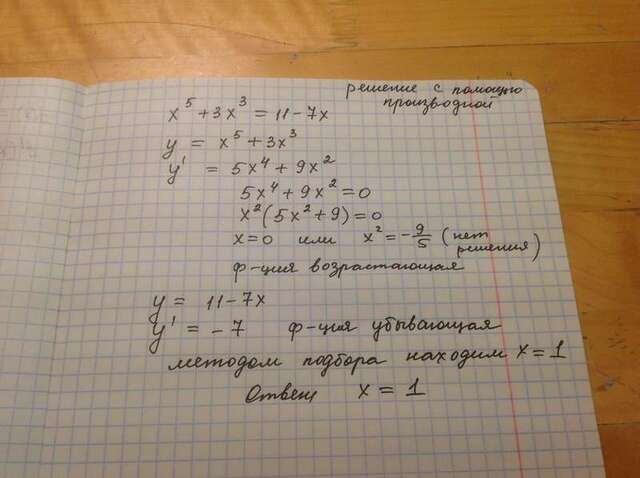 решение с помощью
производной
x⁵ + 3x³ = 11 - 7x
y = x⁵ + 3x³
y' = 5x⁴ + 9x²
5x⁴ + 9x² = 0
x²(5x² + 9) = 0
x = 0 или x² = -9/5 (нет решения)
ф-ция возрастающая
y = 11 - 7x
y' = -7 ф-ция убывающая
методом подбора находим x = 1
Ответ x = 1